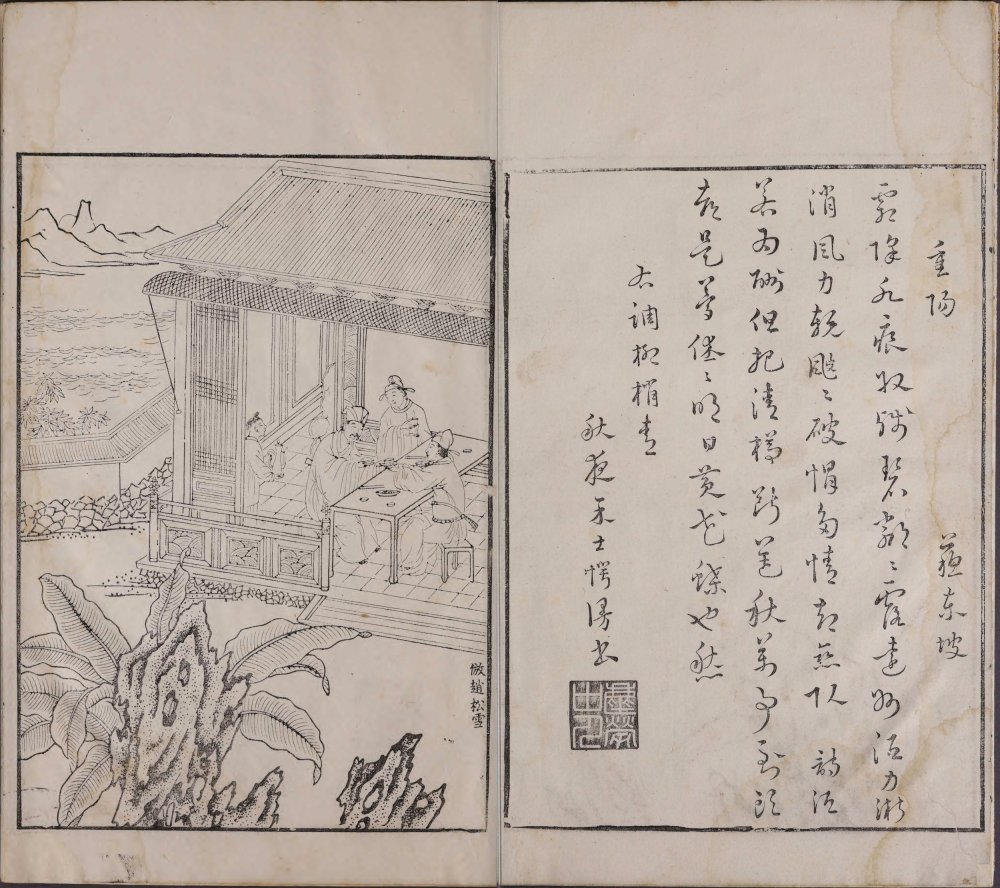 重陽 蘇東坡
霜降水痕收淺碧鱗〻露遠洲酒力漸
消風力軟颼〻破帽多情却戀頭 詩酒
若為酬但把清樽斷送秋萬事到頭
都是夢休〻明日黃花蝶也愁
右調柳梢青
倣趙松雪